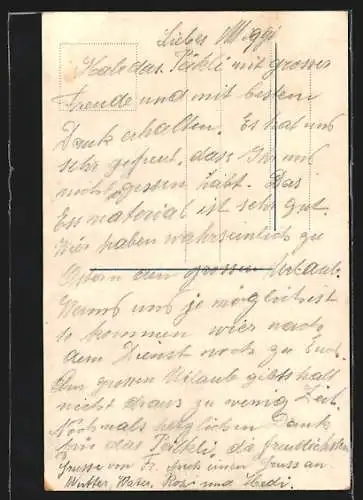 Lieber Miggi
Habe das Päkli mit grosser
Freude und mit bestem
Dank erhalten. Es hat uns
sehr gefreut, dass Ihr uns
nicht gessen habt. Das
Ess material ist sehr gut.
Wier haben wahrscheinlich zu
Ostern den grossen Urlaub.
Wenns uns je möglich ist
so kommen wier nach
dem Dienst noch zu Euch.
Im grossen Urlaub gibts halt
nicht draus zu wenig Zeit.
Nochmals herzlichen Dank
für das Päkkli, die freundlichsten
Grüsse von Fr. Auch einen Gruss an
Mutter, Vater, Rosi und Hedi.